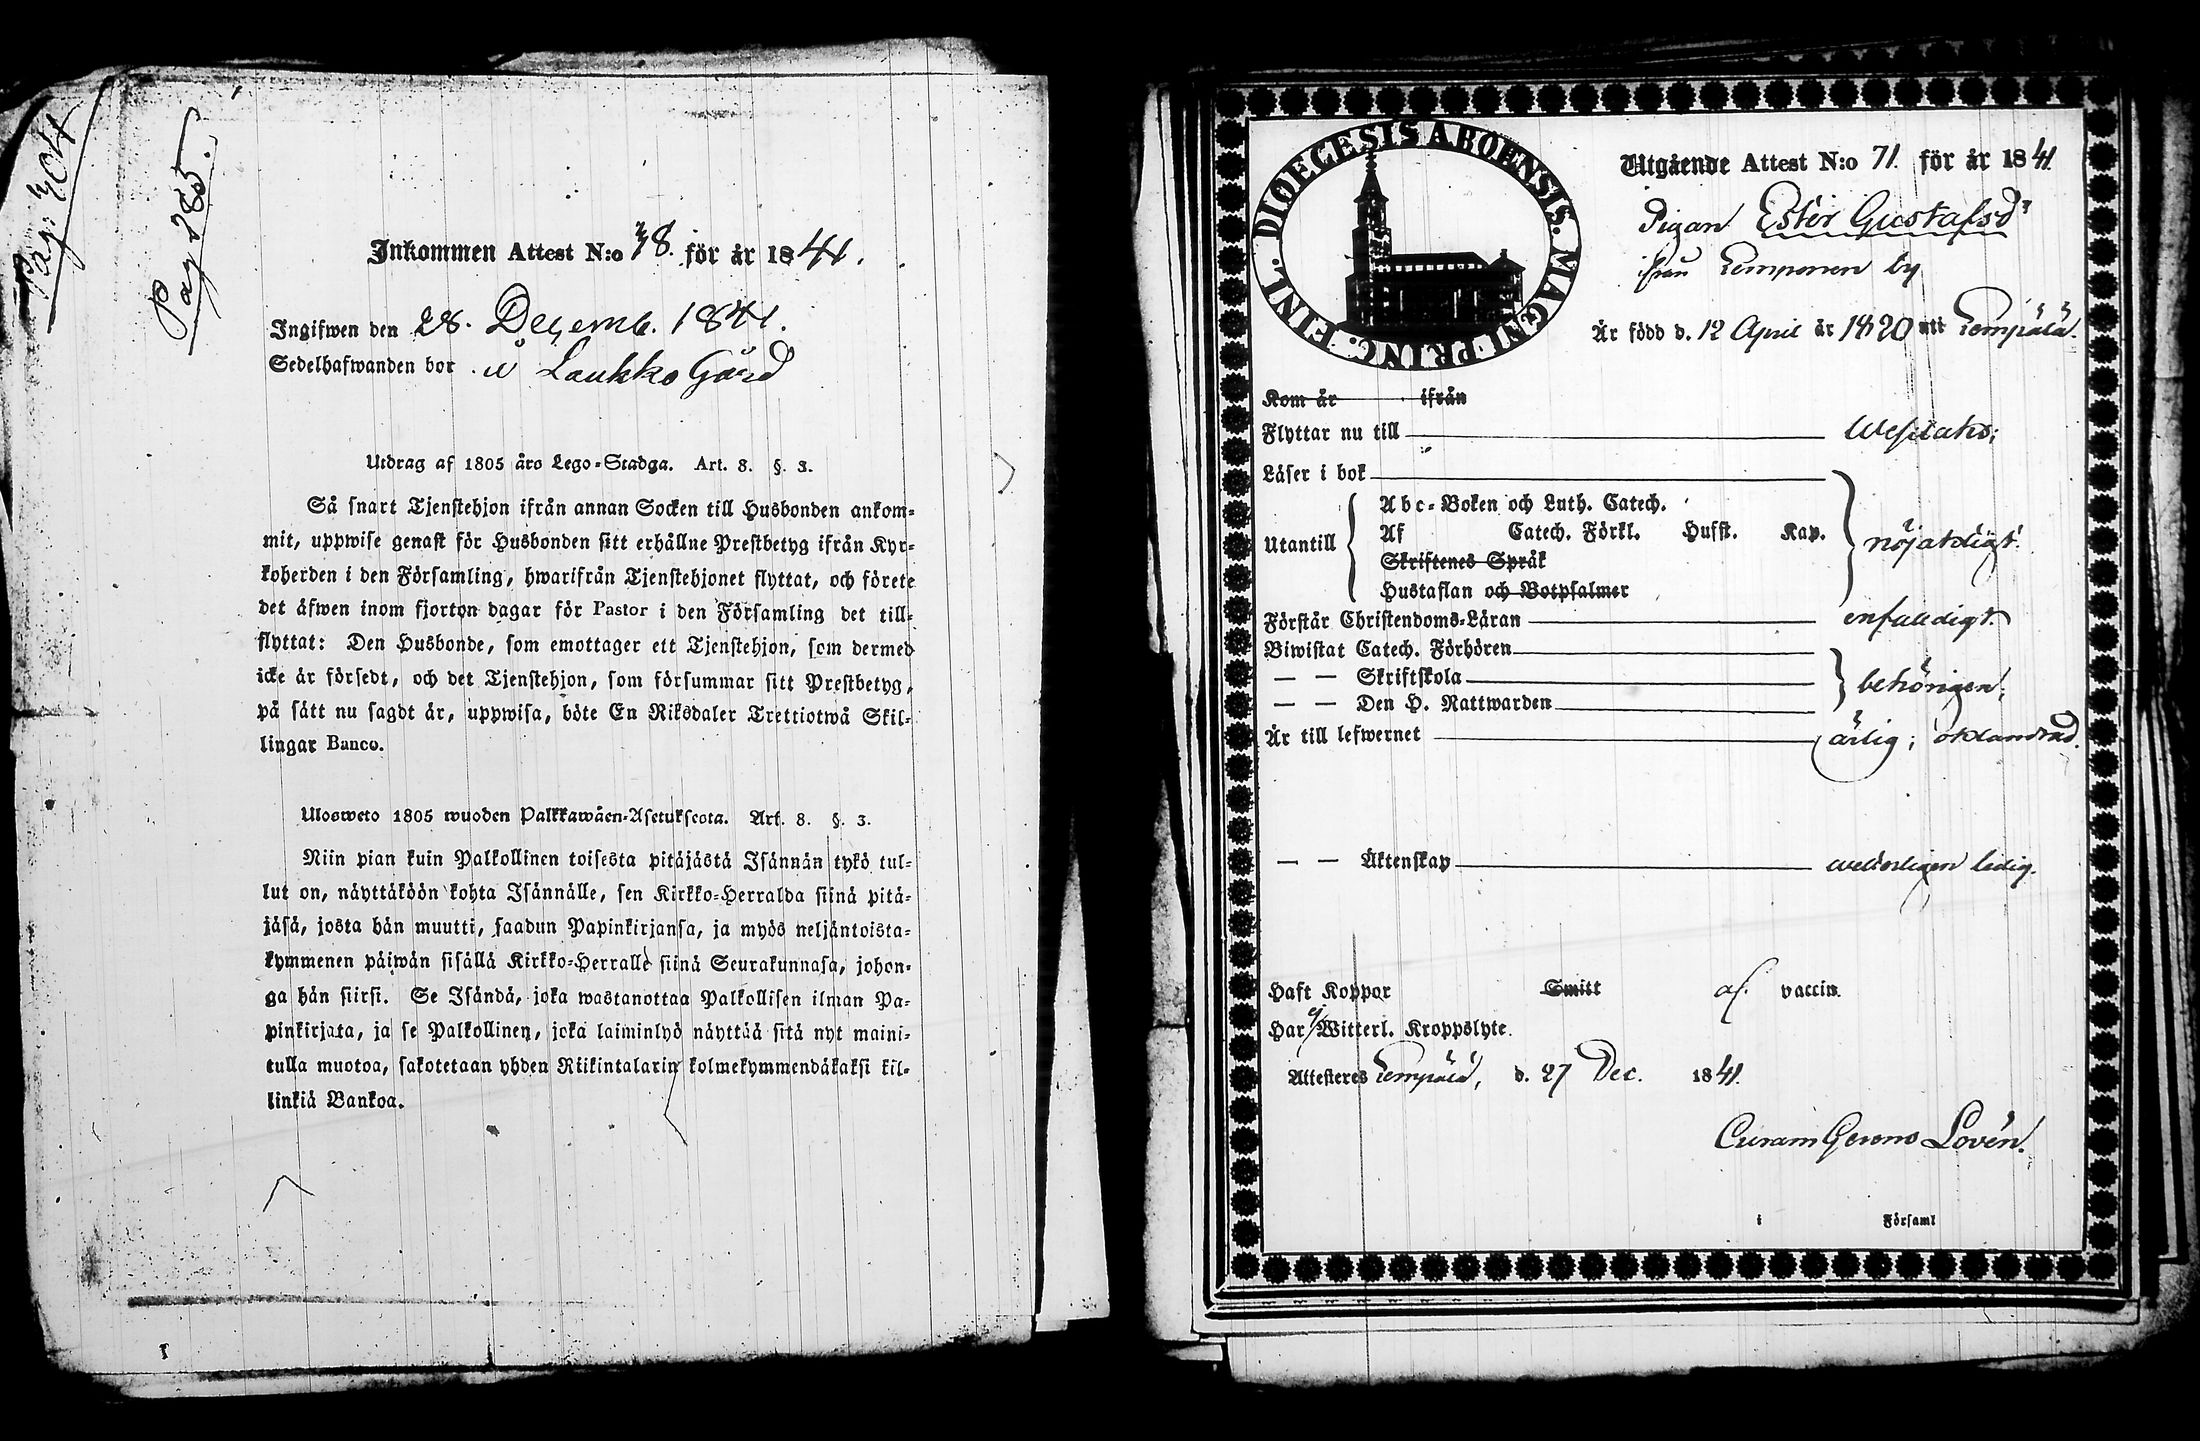 Pag: 304
Pag 285.
Inkommen Attest N:o 78. för år 1841.
Ingifwen den 28. Decemb. 1841.
Sedelhafwanden bor å Laukko Gård
Utdrag af 1805 års Lego-Stadga. Art. 8. §. 3.
Så snart Tjenstehjon ifrån annan Socken till Husbonden ankom-
mit, uppwise genast för Husbonden sitt erhållne Prestbetyg ifrån Kyr-
koherden i den Församling, hwarifrån Tjenstehjonet flyttat, och förete
det äfwen inom fjorton dagar för Pastor i den Församling det till-
flyttat: Den Husbonde, som emottager ett Tjenstehjon, som dermed
icke är försedt, och det Tjenstehjon, som försummar sitt Prestbetyg,
på sätt nu sagdt är, uppwisa, böte En Riksdaler Trettiotwå Skil-
lingar Banco.
Ulosweto 1805 wuoden Palkkawäen-Asetuksesta. Art. 8. §. 3.
Niin pian kuin Palkollinen toisesta pitäjästä Isännän tykö tul-
lut on, näyttäköön kohta Isännälle, sen Kirkko-Herralda siinä pitä-
jäsä, josta hän muutti, saadun Papinkirjansa, ja myös neljäntoista-
kymmenen päiwän sisällä Kirkko-Herralle siinä Seurakunnasa, johon-
ga hän siirsi. Se Isändä, joka wastanottaa Palkollisen ilman Pa-
pinkirjata, ja se Palkollinen, joka laiminlyö näyttää sitä nyt maini-
tulla muotoa, sakotetaan yhden Riikintalarin kolmekymmendäkaksi kil-
linkiä Bankoa.
DIOECESIS ABOENSIS. MAGNI PRINC. FINL.
Utgående Attest N:o 71. för år 1841
Pigan Ester Gustafsdr
ifrån Lemponen by
Är född d. 12 April år 1820 uti Lempälä.
Kom år ifrån
Flyttar nu till Wesilaks;
Läser i bok
Abc-Boken och Luth. Catech.
Utantill Af Catech. Förkl. Husst. Kap. nöjaktigt.
Skriftenes Språk
Hustaflan och Botpsalmer
Förstår Christendoms-Läran enfaldigt.
Biwistat Catech. Förhören
— — Skriftskola behörigen;
— — Den H. Nattwarden
Är till lefwernet ärlig; oklandrad.
— — Äktenskap wederligen ledig.
Haft Koppor Smitt af. vaccin.
Har ej Witterl. Kroppslyte.
Attesteres Lempälä, d. 27 Dec. 1841.
Curam Gerens Lovén.
i Församl